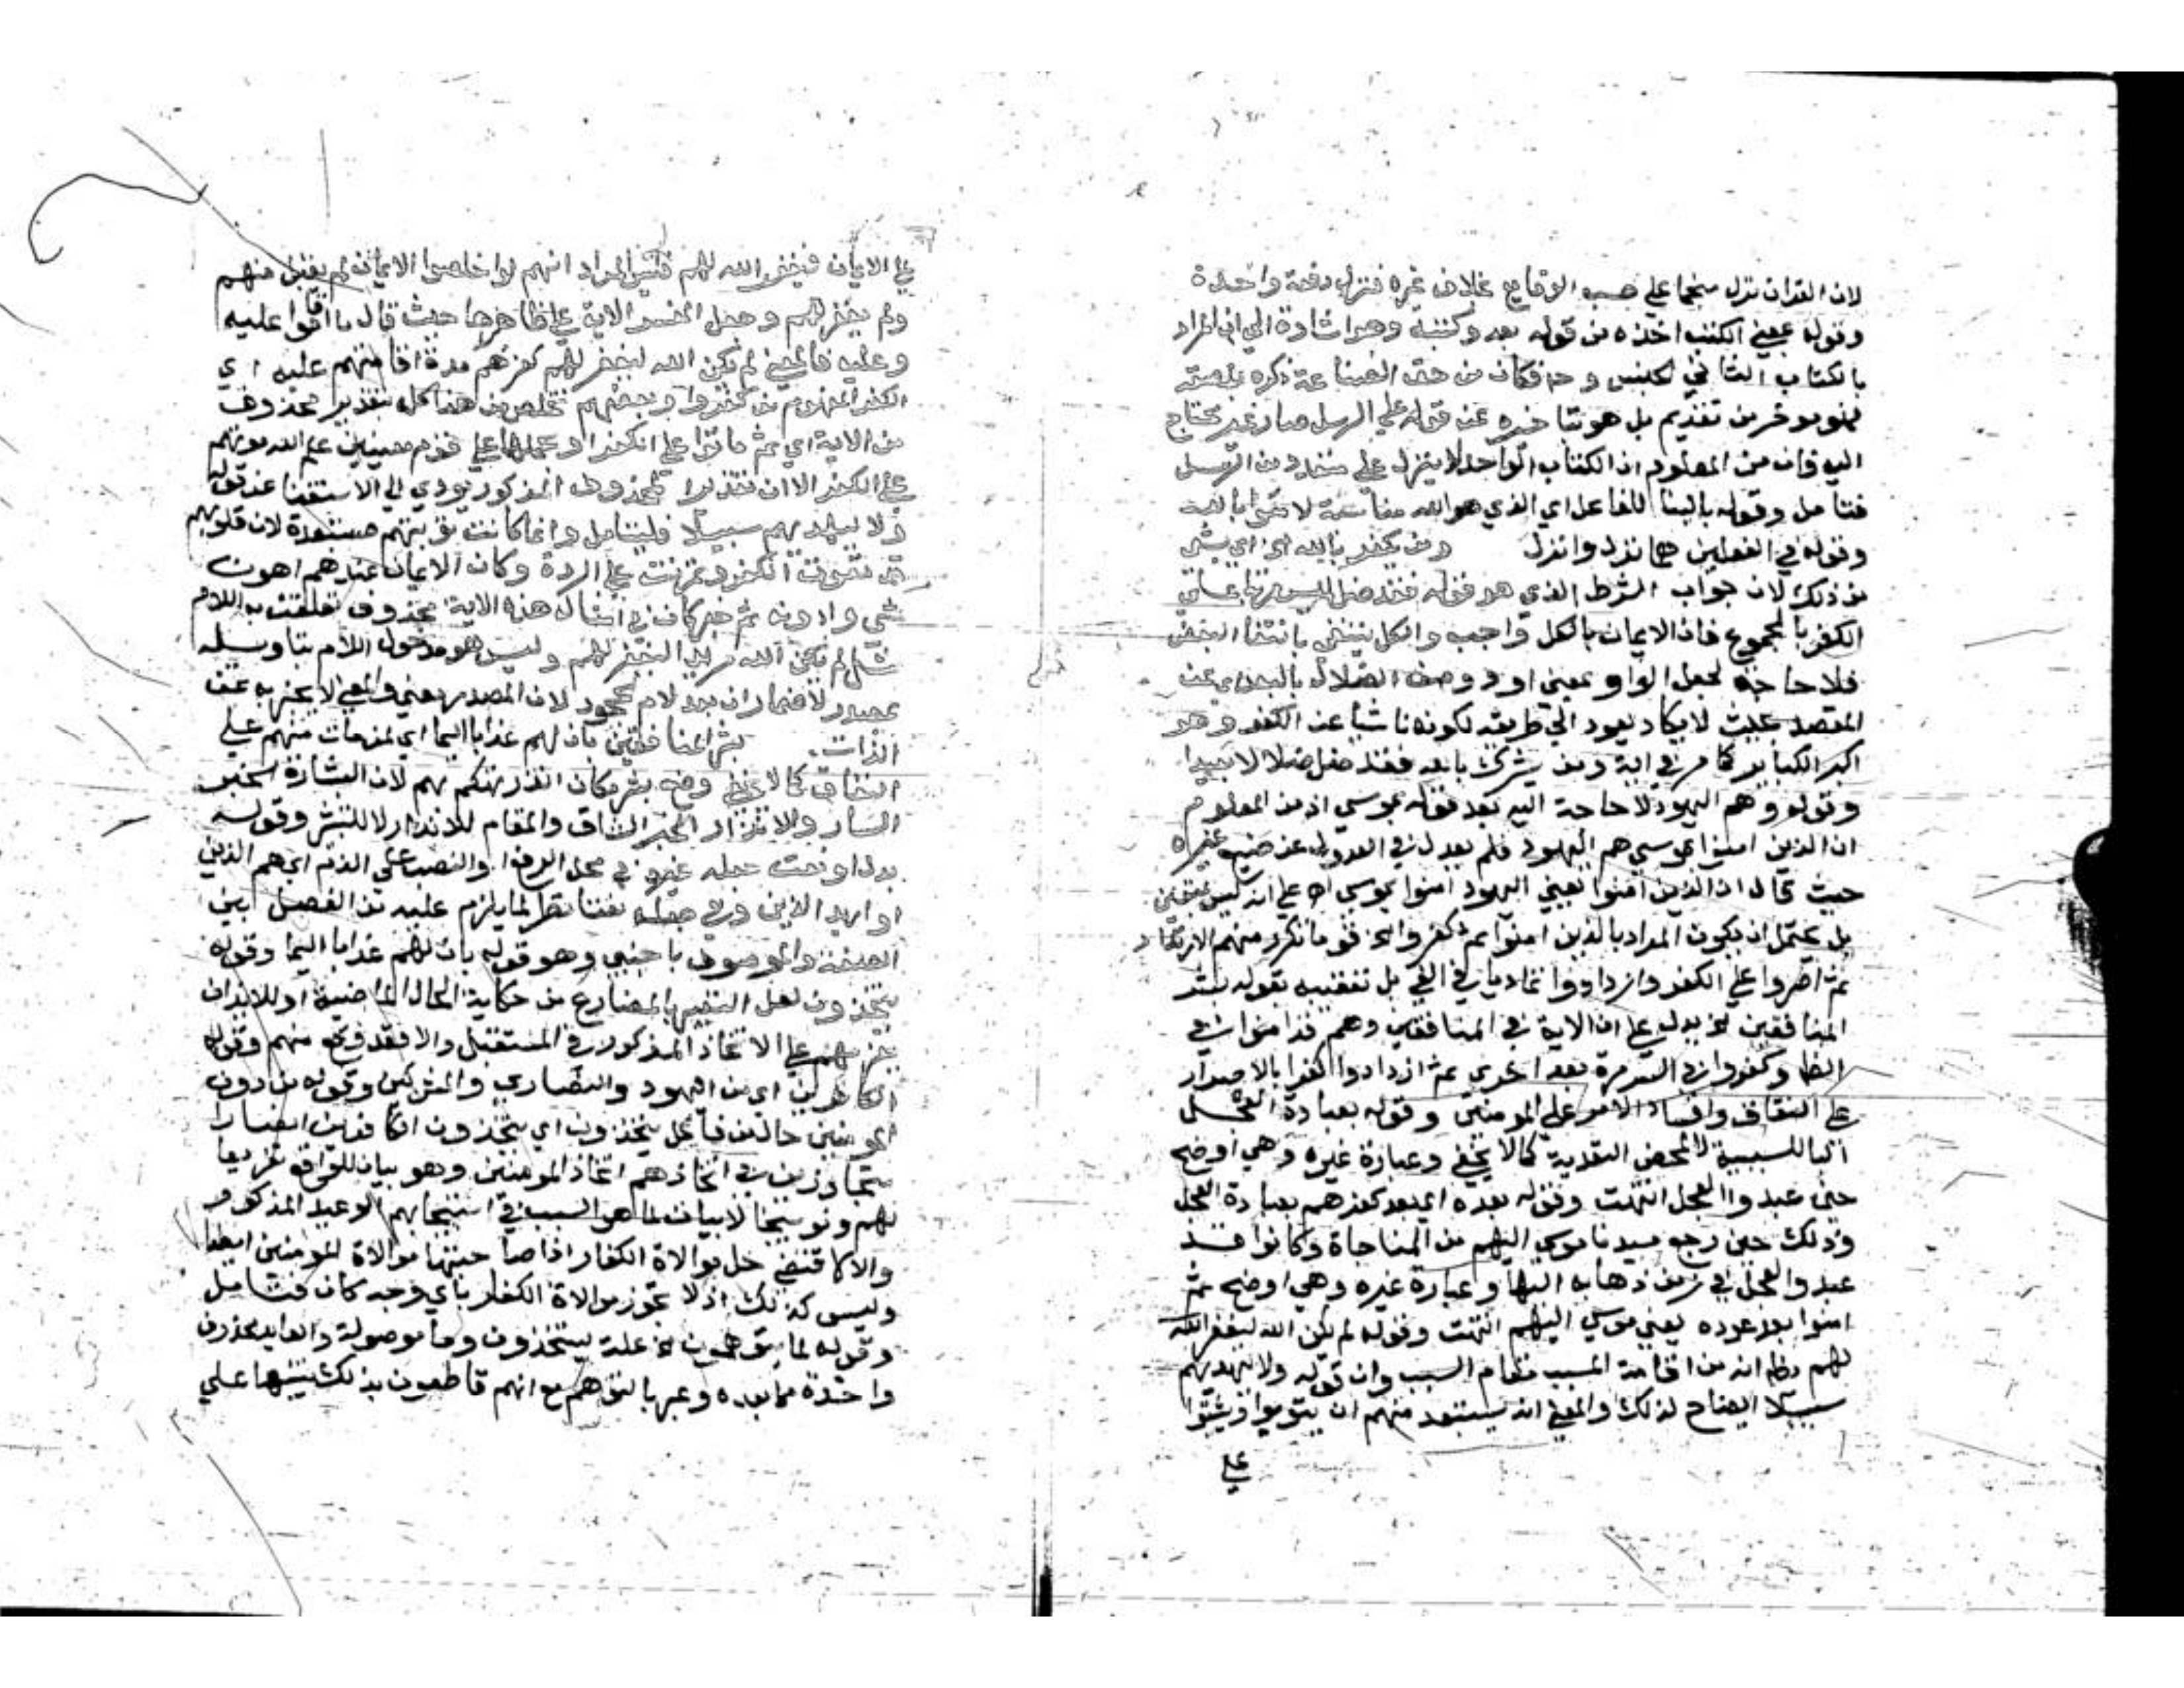 لان القران نزل منجما على حسب الوقايع بخلاف غيره فنزل دفعة واحدة
وقوله بمعني الكتب اخذه من قوله بعد وكتبه وهو اشارة الي ان المراد
بالكتاب الثاني الجنس و فكان من حق الصناعة ذكره بلصقه
فهو موخر من تقديم بل هو بتاخيره عن قوله علي الرسل صار غير محتاج
اليه فان من المعلوم ان الكتاب الواحد لا ينزل علي متعدد من الرسل
فتامل وقوله بالبنا للفاعل اي الذي هو الله
وقوله في الفعلين هما نزل وانزل ومن يكفر بالله اي اي بشي
من ذلك لان جواب الشرط الذي هو قوله فقد ضل ليس مرتبا علي
الكفر بالمجموع فان الايمان بالكل واجب والكل ينتفي بانتفا البعض
فلا حاجة لجعل الواو بمعني او ووصف الضلال بالبعد اي عن
المقصد بحيث لا يكاد يعود الي طريقه لكونه ناشيا عن الكفر وهو
اكبر الكباير كما مر في اية ومن يشرك بالله فقد ضل ضلالا بعيدا
وقوله وهم اليهود لا حاجة اليه بعد قوله بموسي اذ من المعلوم
ان الذين امنوا بموسي هم اليهود فلم يعدل في العدول عن صنيع غيره
حيث قال ان الذين امنوا يعني اليهود امنوا بموسي اه علي انه ليس بمتعين
بل يحتمل ان يكون المراد بالذين امنوا ثم كفروا الخ قوما تكرر منهم الارتداد
ثم اصروا علي الكفر وازدادوا تماديا في الغي بل تعقيبه بقوله بشر
المنافقين الخ يدل علي ان الاية في المنافقين وهم قد امنوا في
الظا وكفروا في السر مرة بعد اخري ثم ازدادوا كفرا بالاصرار
علي النفاق وافساد الامر علي المومنين وقوله بعبادة العجل
البا للسببية لا لمحض التعدية كما لا يخفي وعبارة غيره وهي اوضح
حين عبدوا العجل انتهت وقوله بعده اي بعد كفرهم بعبادة العجل
وذلك حين رجع سيدنا موسي اليهم من المناجاة وكانوا قد
عبدوا العجل في زمن ذهابه اليها وعبارة غيره وهي اوضح ثم
امنوا بعد عوده يعني موسي اليهم انتهت وقوله لم يكن الله ليغفر الله
لهم انه من اقامة المسبب مقام السبب وان قوله ولا ليهديهم
سبيلا ايضاح لذلك والمعني انه يستبعد منهم ان يتوبوا ويثبتوا
علي
علي الايمان فيغفر الله لهم فليس المراد انهم لو اخلصوا الايمان لم يقبل منهم
ولم يغفر لهم وجعل المفسر الاية علي ظاهرها حيث قال ما اقاموا عليه
وعليه فالمعني لم يكن الله ليغفر لهم كفرهم مدة اقامتهم عليه اي
الكفر المفهوم من كفروا وبعضهم تخلص من هذا كله بتقدير محذوف
من الاية اي ثم ماتوا علي الكفر او بحملها علي قوم معينين علم الله موتهم
علي الكفر الا ان تقدير المحذوف المذكور يودي الي الاستغنا عن قوله
ولا ليهديهم سبيلا فليتامل وانما كانت توبتهم مستبعدة لان قلوبهم
قد تعودت الكفر وتمرنت علي الردة وكان الايمان عندهم اهون
شي وادونه ثم خبر كان في امثال هذه الاية محذوف تعلقت به اللام
مثل لم يكن الله مريدا ليغفر لهم وليس هو مدخول اللام بتاويله
بمصدر لاضمار ان بعد لام الجحود لان المصدر معني والمعني لا يخبر به عن
الذات. بشر المنافقين بان لهم عذابا اليما اي لمن مات منهم علي
النفاق كما لا يخفي وضع بشر مكان انذر تهكم بهم لان البشارة الخبر
السار والانذار الخبر الشاق والمقام للانذار لا للتبشر وقوله
بدل او نعت جعله غيره في محل الرفع او النصب علي الذم اي هم الذين
او اريد الذين وفي جعله نعتا نظر لما يلزم عليه من الفصل بين
الصفة والموصوف باجنبي وهو قوله بان لهم عذابا اليما وقوله
يتخذون لعل التعبير بالمضارع من حكاية الحال الماضية او للايذان
بعزمهم علي الاتخاذ المذكور في المستقبل والا فقد وقع منهم وقوله
الكافرين اي من اليهود والنصاري والمشركين وقوله من دون
المومنين حال من فاعل يتخذون اي يتخذون الكافرين انصارا
متجاوزين في اتخاذهم اتخاذ المومنين وهو بيان للواقع تقريعا
لهم وتوبيخا لا بيان لما هو السبب في استيجابهم الوعيد المذكور
والا لاقتضي حل موالاة الكفار اذا صاحبتها موالاة المومنين ايضا
وليس كذلك اذ لا تجوز موالاة الكفار باي وجه كان فتامل
وقوله لما يتوهمون الخ علة ليتخذون وما موصولة والعايد محذوف
واحدة مما بعده وعبر بالتوهم مع انهم قاطعون بذلك تنبيها علي